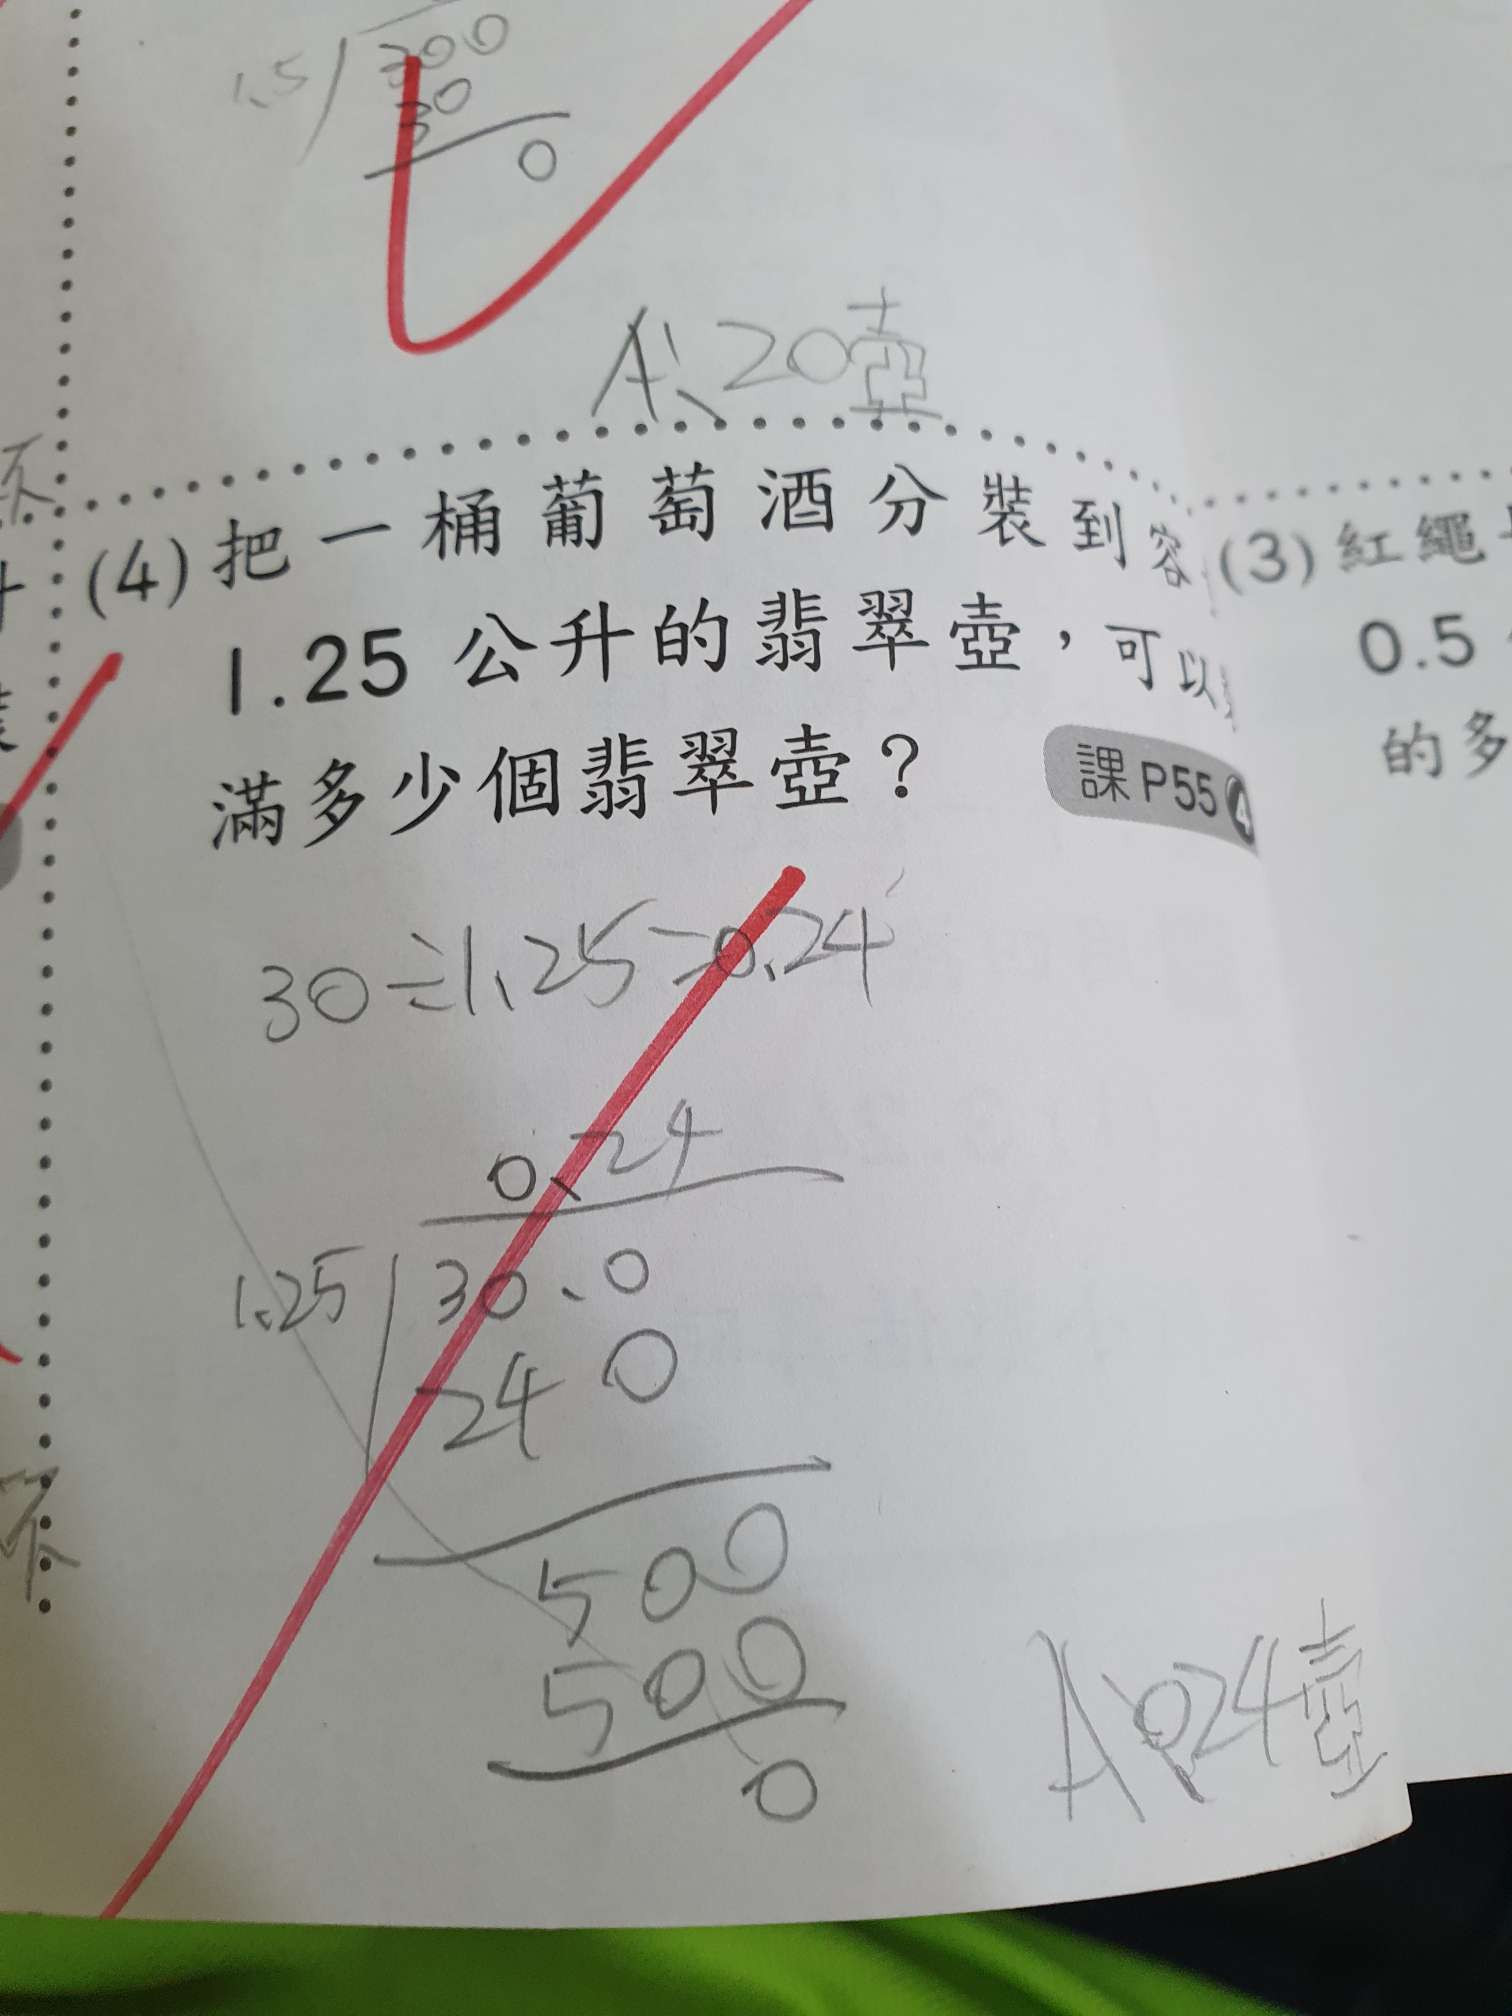 1.5 300
30
0
A:20壺
(4) 把一桶葡萄酒分裝到容
1.25 公升的翡翠壺，可以
滿多少個翡翠壺？
課P55 4
30÷1.25=0.24
0.24
1.25 30.0
24 0
500
500
0
A:0.24壺
(3) 紅繩
0.5
的多